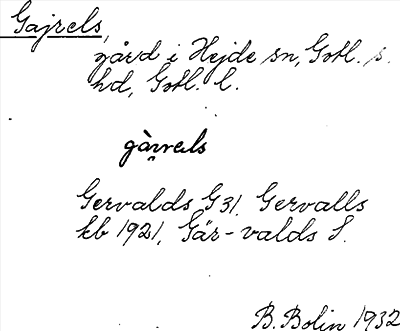 Gajrels,
gård i Hejde sn, Gotl. s.
hd, Gotl. l.
gàrrels
Gervalds G31. Gervalls
kb 1921, Gär-valds S.
B. Bolin 1932